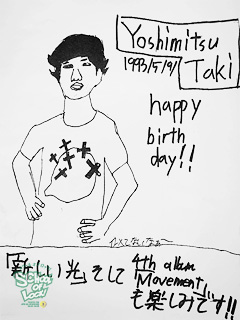 Yoshimitsu
Taki
1993/5/9/
happy
birth
day!!
「新しい光」そして 4th album
「Movement」
も楽しみです!!
SCHOOL OF LOCK!